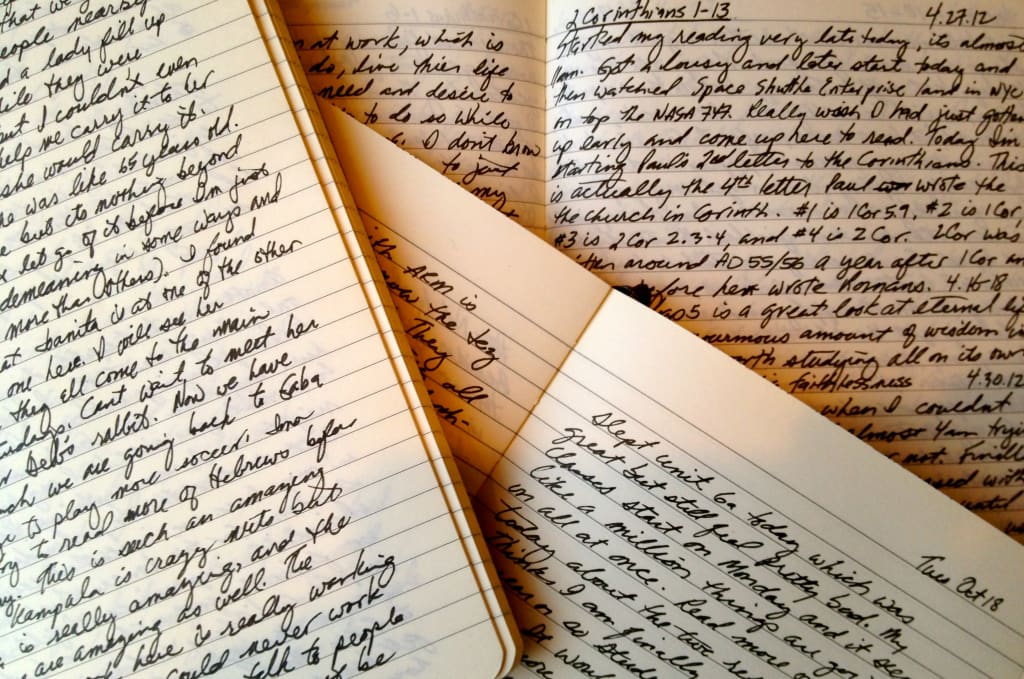 that we
people nearby
a lady fill up
while they were
but I couldn't even
help me carry it to her
she would carry it.
he was like 65 years old.
but its nothing beyond
let go of it before I'm just
demeaning in some ways and
more than others). I found
at Juanita is at one of the other
one here. I will see her
they all come to the main
Sundays. Cant wait to meet her
Deb's rabbit. Now we have
we are going back to Gaba
to play more soccer.
to read more of Hebrews before
This is such an amazing
Kampala is crazy nuts but
is really amazing, and the
are amazing as well. The
here is really working
could never work
talk to people
be
at work, which is
do, live their life
need and desire to
to do so while
I don't know
to just
my
is
the
They
all
2 Corinthians 1-13 4.27.12
Started my reading very late today, its almost
11am. Got a lousy and later start today and
then watched Space Shuttle Enterprise land in NYC
on top the NASA 747. Really wish I had just gotten
up early and come up here to read. Today I'm
starting Paul's 2nd letter to the Corinthians. This
is actually the 4th letter Paul wrote the
the church in Corinth. #1 is 1Cor 5.9, #2 is 1Cor,
#3 is 2Cor 2.3-4, and #4 is 2 Cor. 2Cor was
around AD 55/56 a year after 1Cor an
before he wrote Romans. 4.16-18
5 is a great look at eternal li
amount of wisdom
worth studying all on its own
faithlessness 4.30.12
when I couldnt
almost 4am tryin
not. Finall
with
Tues Oct 18
Slept until 6a today which was
great but still feel pretty bad. My
classes start on Monday and it see
like a million things are go
on all at once. Read more
today about the two
Thinks I am finally
as
wou